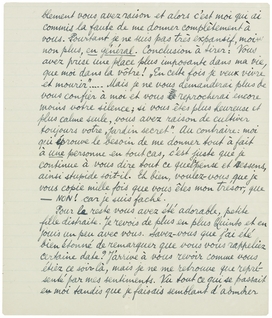 blement vous avez raison et alors c'est moi qui ai
commis la faute de me donner complètement à
vous. Pourtant je ne suis pas très expansif, moi
non plus, en général. Conclusion à tirer? Vous
avez pris une place plus imposante dans ma vie,
que moi dans la vôtre! "En cette fois je veux vivre
et mourir"..... Mais je ne vous demanderai plus de
vous confier à moi et vous reprocherai encore
moins votre silence; si vous êtes plus heureuse et
plus calme seule, vous avez raison de cultiver
toujours votre "jardin secret". Au contraire: moi
qui éprouve le besoin de me donner tout à fait
à une personne ou tout cas, c'est juste que je
continue à vous dire tout ce que pense et ressens,
ainsi stupide soit-il. Eh bien, voulez-vous que je
vous copie mille fois que vous êtes mon trésor, que
— NON! car je suis fâché.
Pour le reste vous avez été adorable, petite
fille distraite. Je revois de plus en plus
jours un peu avec vous. Savez-vous que j'ai été
bien étonné de remarquer que vous vous rappeliez
certaine date? J'arrive à vous revoir comme vous
étiez ce soir-là, mais je ne me retrouve que représenté
par mes sentiments. Vu tout ce qui se passait
en moi tandis que je faisais semblant d'admirer